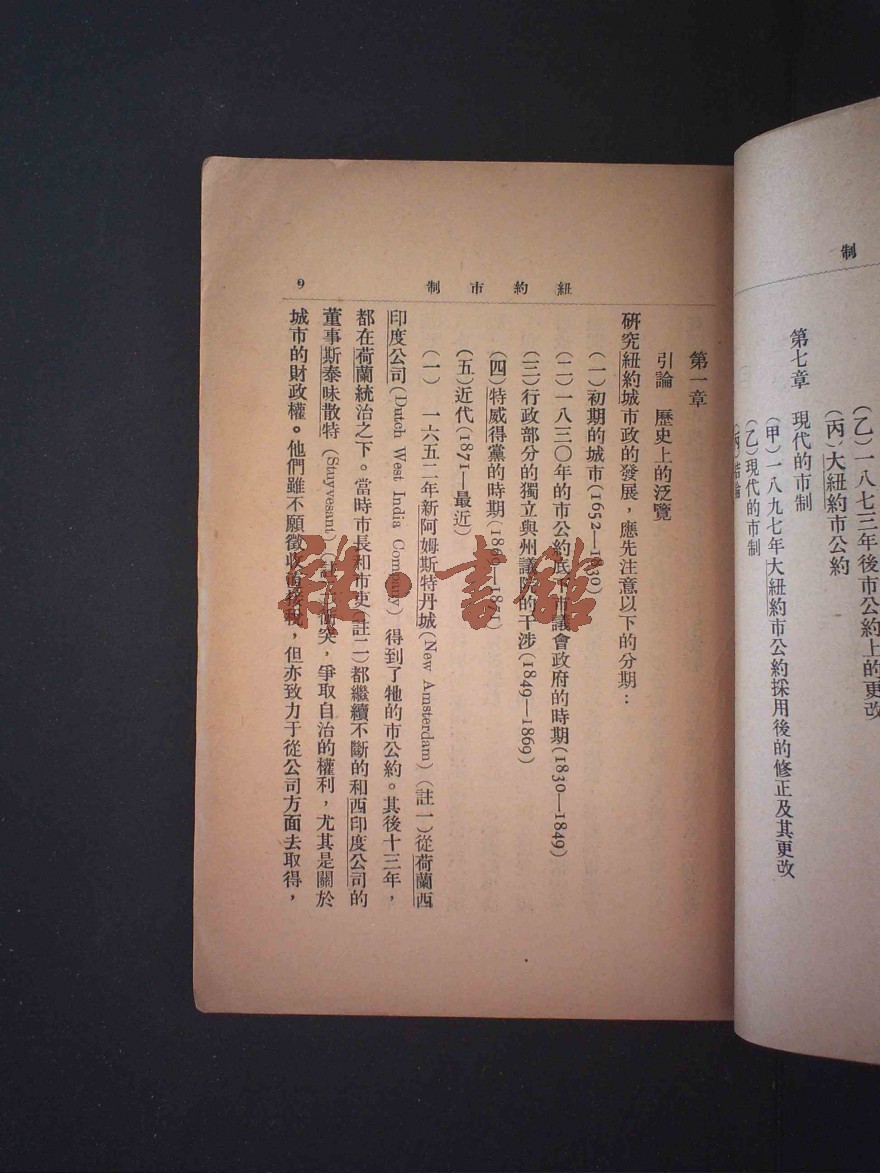 制
(乙)一八七三年後市公約上的更改
(丙)大紐約市公約
第七章 現代的市制
(甲)一八九七年大紐約市公約採用後的修正及其更改
(乙)現代的市制
(丙)結論
紐約市制
9
第一章
引論 歷史上的泛覽
研究紐約城市政的發展，應先注意以下的分期：
(一)初期的城市(1652—1830)
(二)一八三〇年的市公約底下市議會政府的時期(1830—1849)
(三)行政部分的獨立與州議院的干涉(1849—1869)
(四)特威得黨的時期(1869—1871)
(五)近代(1871—最近)
(一) 一六五二年新阿姆斯特丹城(New Amsterdam)(註一)從荷蘭西
印度公司(Dutch West India Company) 得到了牠的市公約。其後十三年，
都在荷蘭統治之下。當時市長和市吏(註二)都繼續不斷的和西印度公司的
董事斯泰味散特 (Stuyvesant)(註 衝突，爭取自治的權利，尤其是關於
城市的財政權。他們雖不願徵收直接稅，但亦致力于從公司方面去取得，
書館